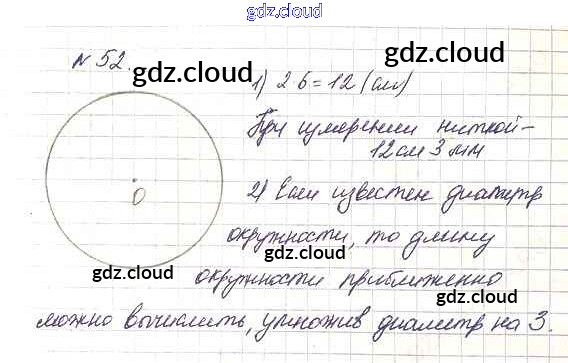 gdz.cloud
N 52.
gdz.cloud
gdz.cloud
1) 2 6 = 12 (см)
При измерении ниткой -
gdz.cloud
12 см 3 мм
O
2) Если известен диаметр
gdz.cloud
окружности, то длину
gdz.cloud
окружности приближенно
gdz.cloud
можно вычислить, умножив диаметр на 3.